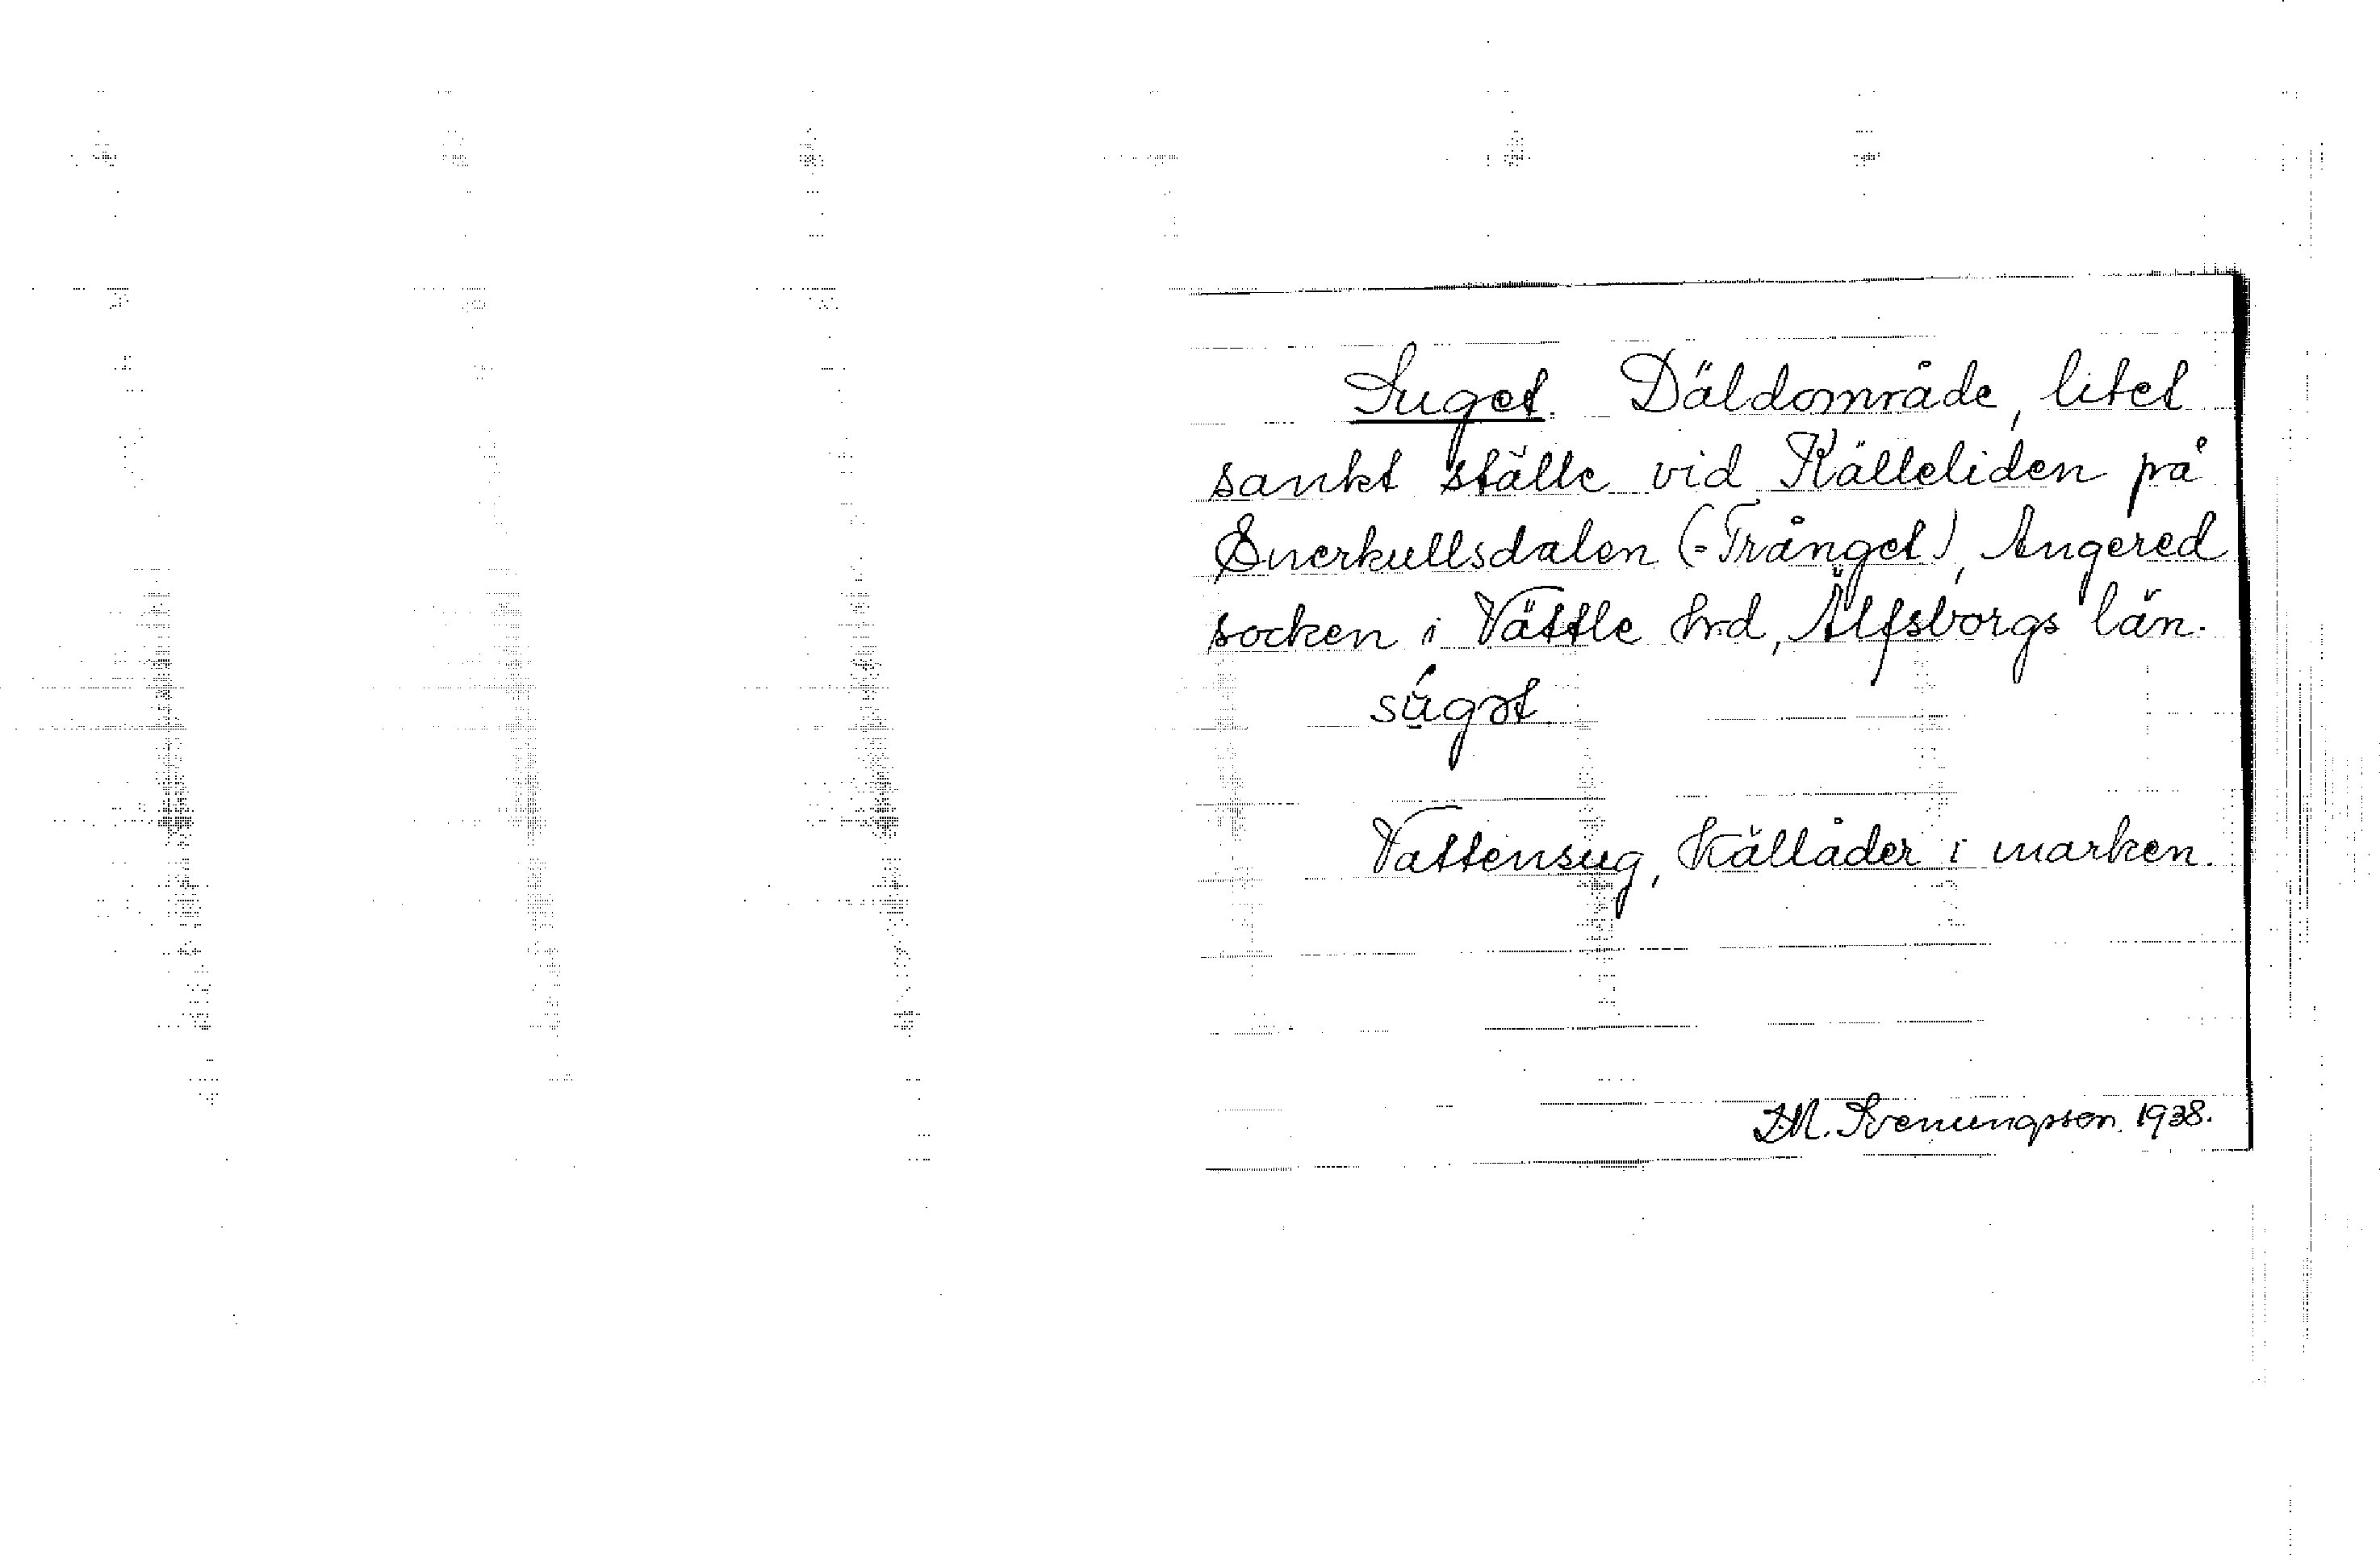 Suget. Däldområde, litet
sankt ställe vid Källeliden på
Snerkullsdalen (=Trånget), Angered
socken i Vättle hrd, Älfsborgs län.
súgət
Vattensug, Källåder i marken.
J.M. Svenungsson. 1938.